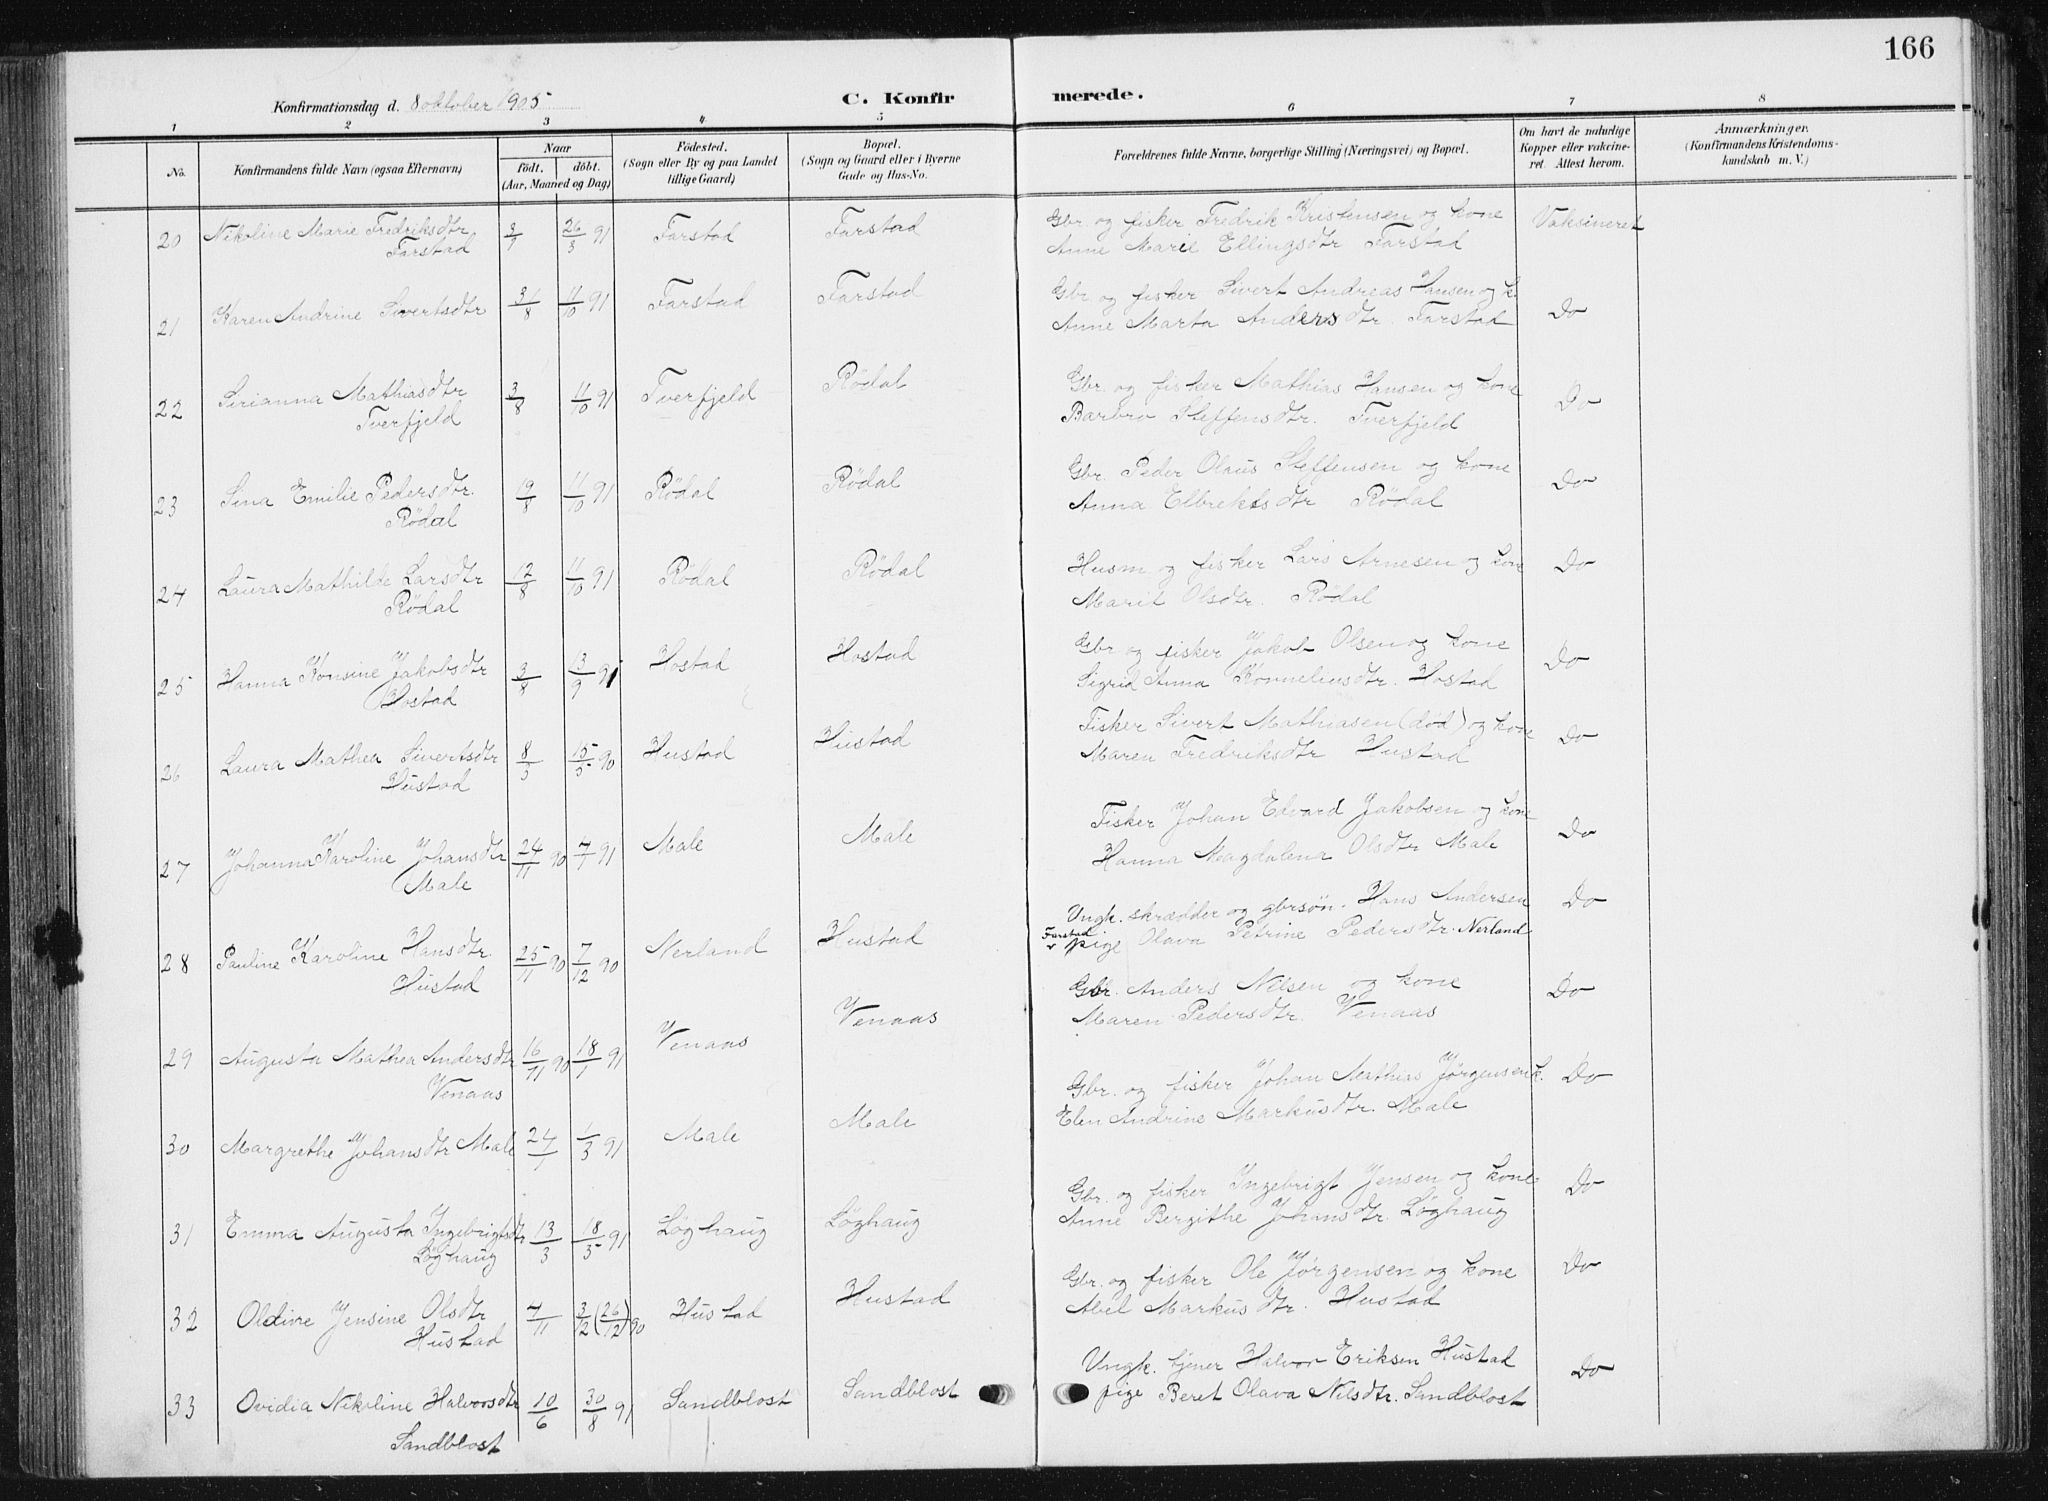 166
Konfirmationsdag d. 8 oktober 1905
C. Konfir
merede.
1 2 3 4 5 6 7 8
No.
Konfirmandens fulde Navn (ogsaa Efternavn)
Naar
födt. döbt.
(Aar, Maaned og Dag)
Födested.
(Sogn eller By og paa Landet
tillige Gaard)
Bopæl.
(Sogn og Gaard eller i Byerne
Gade og Hus-No.
Forældrenes fulde Navne, borgerlige Stilling (Næringsvei) og Bopæl.
Om havt de naturlige
Kopper eller vakcine-
ret. Attest herom.
Anmærkninger.
(Konfirmandens Kristendoms-
kundskab m. V.)
20 Nikoline Marie Fredriksdtr 3/1 26/3 91 Farstad Farstad Gbr. og fisker Fredrik Kristensen og kone Vaksineret
Farstad Anne Marie Ellingsdtr Farstad
21 Karen Andrine Sivertsdtr 31/8 11/10 91 Farstad Farstad Gbr og fisker Sivert Andreas Hansen og k.
Anne Marta Andersdtr. Farstad Do
22 Sirianna Mathiasdtr 3/8 11/10 91 Tverfjeld Rödal Gbr. og fisker Mathias Hansen og kone Do
Tverfjeld Barbro Steffensdtr. Tverfjeld
23 Sina Emilie Pedersdtr. 19/8 11/10 91 Rödal Rödal Gbr. Peder Olaus Steffensen og kone Do
Rödal Anna Elbrektsdtr Rödal
24 Laura Mathilde Larsdtr 12/8 11/10 91 Rödal Rödal Husm og fisker Lars Arnesen og kone Do
Rödal Marit Olsdtr. Rödal
25 Hanna Konsine Jakobsdtr 3/8 13/9 91 Hostad Hostad Gbr og fisker Jakob Olsen og kone Do
Hostad Sigrid Anna Korneliusdtr. Hostad
26 Laura Mathea Sivertsdtr 8/3 15/5 90 Hustad Hustad Fisker Sivert Mathiasen (död) og kone Do
Hustad Maren Fredriksdtr Hustad
27 Johanna Karoline Johansdtr 24/11 90 4/1 91 Male Male Fisker Johan Edvard Jakobsen og kone Do
Male Hanna Magdalena Olsdtr Male
28 Pauline Karoline Hansdtr. 25/11 90 7/12 90 Nerland Hustad Ungk. skrædder og gbrsön. Hans Andersen Do
Farstad
Hustad v pige Olava Petrine Pedersdtr. Nerland
29 Augusta Mathea Andersdtr 16/11 90 18/1 91 Venaas Venaas Gbr. Anders Nilsen og kone Do
Venaas Maren Pedersdtr. Venaas
30 Margrethe Johansdtr Male 24/1 1/3 91 Male Male Gbr. og fisker Johan Mathias Jørgensen k. Do
Elen Andrine Markusdtr. Male
31 Emma Augusta Ingebrigtsdtr 13/3 18/5 91 Løghaug Løghaug Gbr. og fisker Ingebrigt Jensen og kone Do
Løghaug Anne Bergithe Johansdtr. Løghaug
32 Oldine Jensine Olsdtr 4/11 3/12 (26/12) 90 Hustad Hustad Gbr. og fisker Ole Jørgensen og kone Do
Hustad Abel Markusdtr. Hustad
33 Ovidia Nikoline Halvorsdtr 10/6 30/8 91 Sandblost Sandblost Ungk. tjener Halvor Eriksen Hustad Do
Sandblost pige Beret Olava Nilsdtr. Sandblost